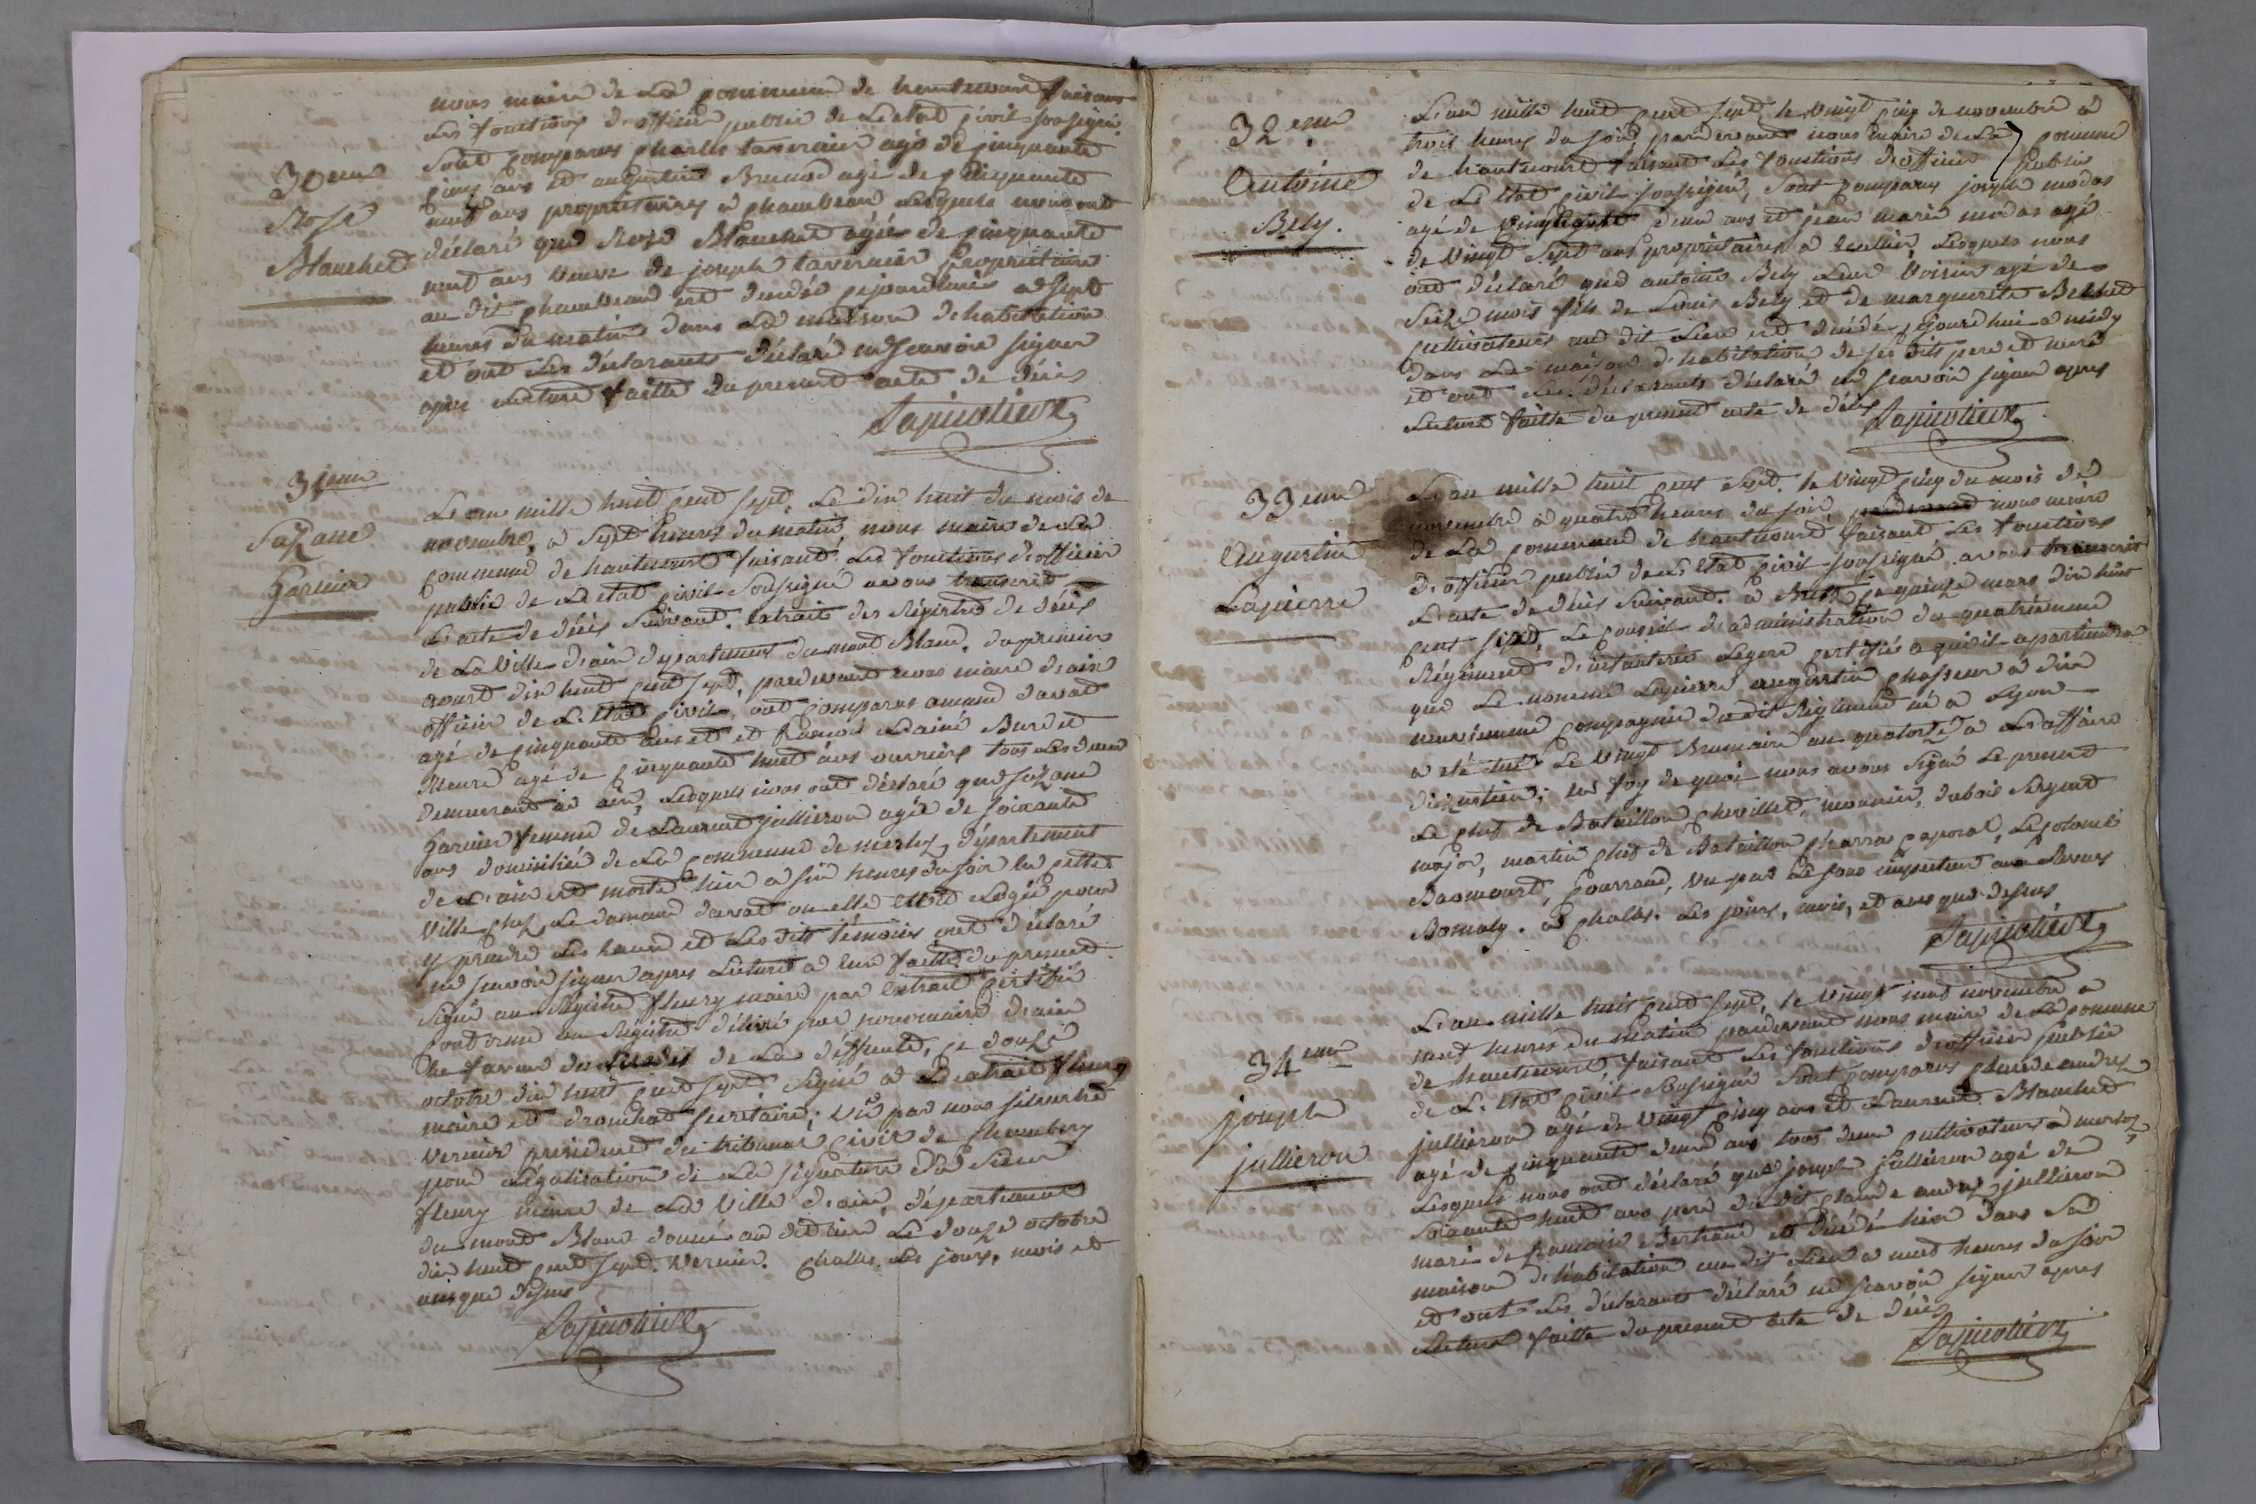 nous maire de La commune de hautecourt faisant
Les fonctions d'officier public de L'etat civil soussigné
30eme
Rose
Blanchet
Sont comparus charles tavernier agé de cinquante
cinq ans et augustin Brunod agé de cinquante
neuf ans propriétaires a chambeau Lesquels nous ont
déclaré que Rose Blanchet agée de cinquante
neuf ans veuve de joseph tavernier propriétaire
au dit chambeau est décédée cejourdhuis a sept
heures du matin dans La maison dehabitation
et ont Les déclarants déclaré ne scavoir signer
apres Lecture faitte du present acte de décès
31eme
Suzane
Garnier
L'an mille huit cent sept, Le dix huit du mois de
novembre, a sept heures du matin, nous maire de La
commune de hautecourt faisant Les fonctions d'officier
public de L'etat civil soussigné avons transcrit
L'acte de décès suivant. Extrait des Régistres de décès
de La Ville d'aix département du mont Blanc, du premier
aoust dix huit cent sept, pardevant nous maire d'aix
officier de L'etat civil, ont comparus amand davat
agé de cinquante ans et et francois Lainé Burdet
agé de cinquante huit ans ouvriers tous Les deux
demeurant à aix, Lesquels nous ont déclaré que suzane
Garnier femme de Laurent jullieron agée de soixante
ans domiciliée de La commune de merloz département
de L'ain est morte hier a six heures du soir en cette
Ville chez Le damand davat ou elle etoit Logée pour
y prendre Les heaux et Les dits témoins ont déclaré
ne scavoir signer apres Lecture a eux faitte du present
signé au Régistre fleury maire par extrait certifié
conforme au Régistre délivré par nous maire d'aix
En faveur du de La deffunte, ce douze
octobre dix huit cent sept signé a L'extrait fleury
maire et drouchat secrétaire; Vû par nous silvestre
vernier president du tribunal civil de chambery
pour Légalisation de La signature du sieur
fleury maire de La Ville d'aix, département
du mont Blanc donné au dit aix Le douze octobre
dix huit cent sept. Vernier. challes. Les jours, mois et
ans que dessus
32eme
Antoine
Bely.
L'an mille huit cent sept le vingt cinq de novembre à
trois heures du soir pardevant nous maire de La commune
de hautecourt faisant Les fonctions d'officier public
de L'etat civil soussigné, sont comparus joseph modas
agé de deux ans et jean marie modas agé
de vingt sept ans propriétaires a Lesquels nous
ont déclaré que antoine Bely Leur Voisin agé de
seize mois fils de Louis Bely et de marguerite
cultivateurs au dit Lieu est décédé cejourdhui a midy
dans La maison d'habitation de ses dits pere et mere
et ont Les déclarants déclaré ne scavoir signer apres
Lecture faitte du present acte de décès
33eme
Augustin
Lapierre
L'an mille huit cent sept. le vingt cinq du mois de
novembre à quatre heures du soir, pardevant nous maire
de La commune de hautecourt faisant Les fonctions
d'officier public de L'etat civil soussigné avons transcris
L'acte de décès suivant. à ce quinze mars dix huit
cent sept, Le conseil d'administration du quatrième
Régiment d'infanterie Legere certifie a qui il apartiendra
que Le nommé Lapierre augustin chasseur à dix
neuvième compagnie du dit Régiment né a Lyon
a été tué Le vingt Brumaire an quatorze a L'affaire
en foy de quoi nous avons signé Le present
Le chef de Bataillon chevillet, meunier, dubois sergent
major, martin chef de Bataillon charras caporal, Le colonel
Bazancourt, vu par Le sous inspecteur aux Revues
à challes. Les jours, mois, et ans que dessus
34eme
joseph
jullieron
L'an mille huit cent sept, le vingt neuf novembre a
neuf heures du matin pardevant nous maire de La commune
de hautecourt faisant Les fonctions d'officier public
de L'etat civil soussigné sont comparus claude andréz
jullieron agé de vingt cinq ans et Laurent Blanchet
agé de cinquante deux ans tous deux cultivateurs a merloz
Lesquels nous ont déclaré que joseph jullieron agé de
soixante huit ans pere du dit claude andréz jullieron
mari de francoise est décédé hier dans sa
maison d'habitation au dit Lieu a neuf heures du soir
et ont Les déclarants déclaré ne scavoir signer apres
Lecture faitte du present acte de décès